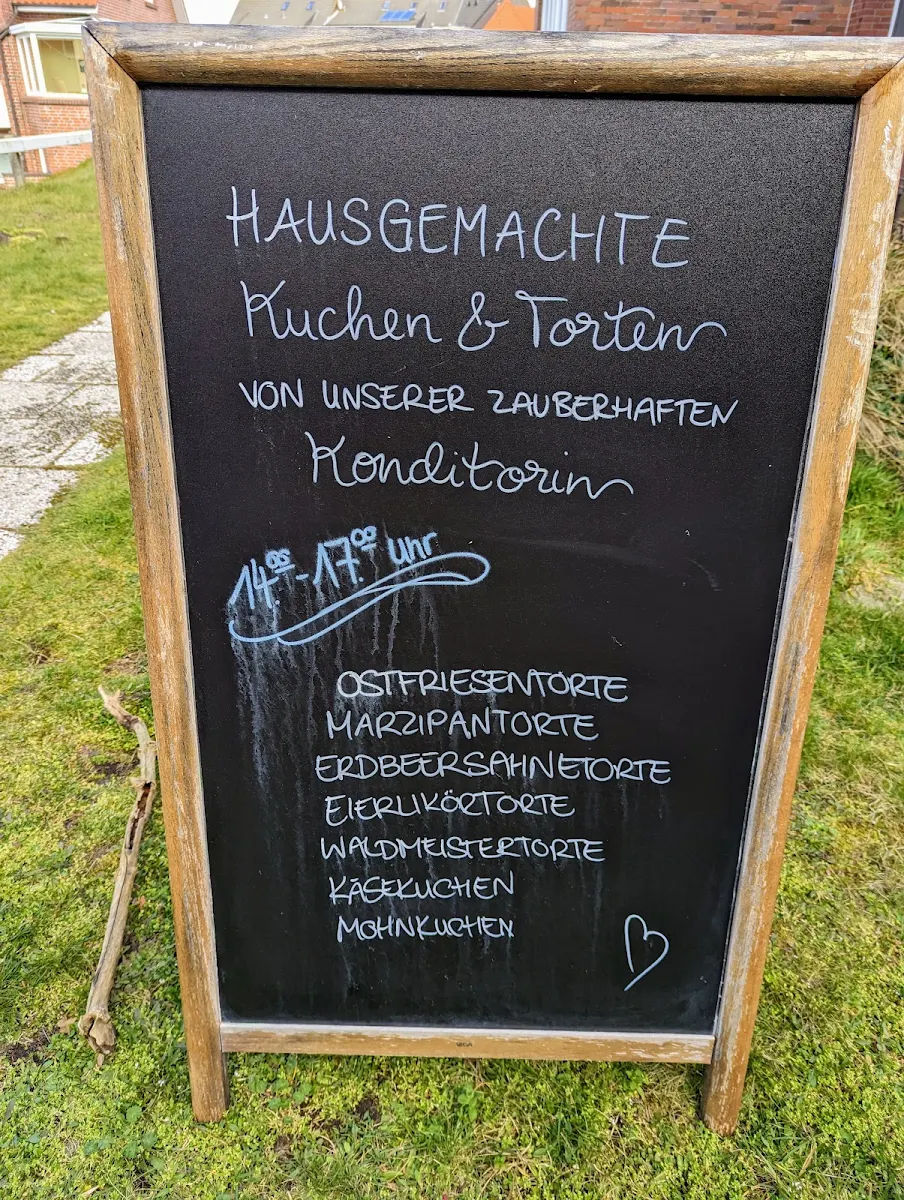 HAUSGEMACHTE
Kuchen & Torten
VON UNSERER ZAUBERHAFTEN
Konditorin
14.00 - 17.00 Uhr
OSTFRIESENTORTE
MARZIPANTORTE
ERDBEERSAHNETORTE
EIERLIKÖRTORTE
WALDMEISTERTORTE
KÄSEKUCHEN
MOHNKUCHEN